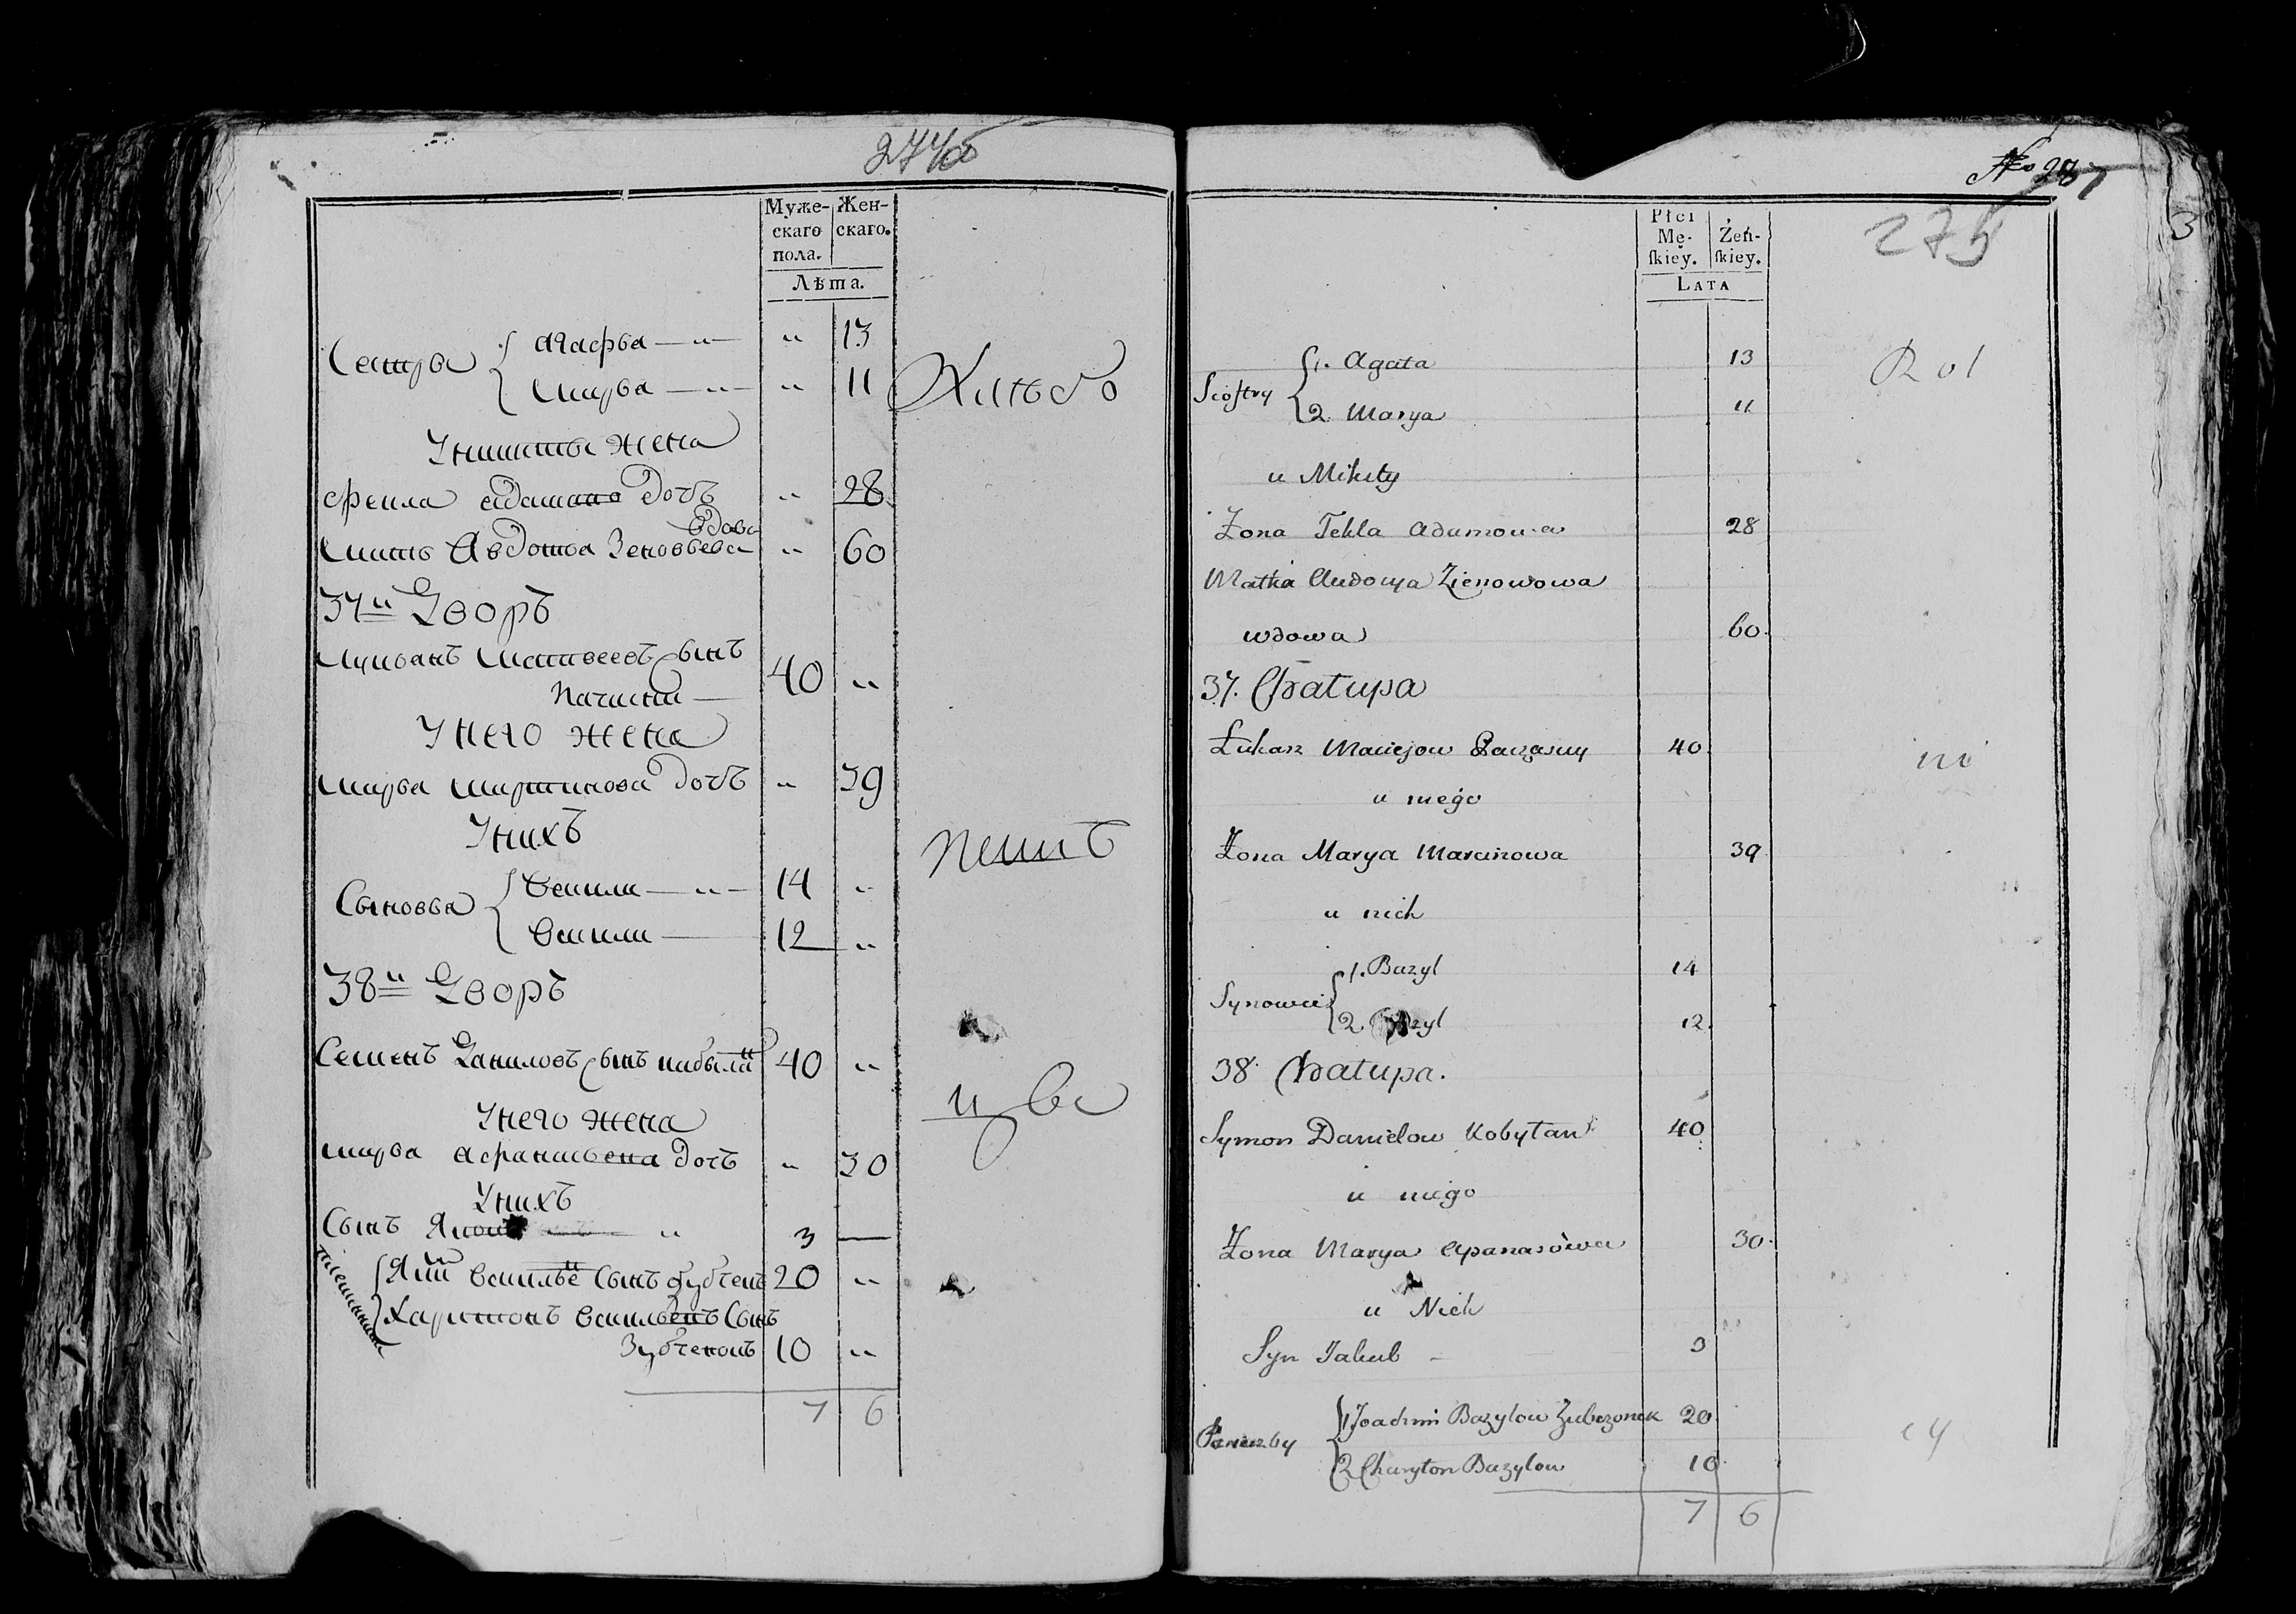 274об
Муже-
скаго
пола.
Жен-
скаго.
Лѣта.
Сестры
Агафья — „ — „ 13
Марья — „ — „ 11
У Никиты жена
Фекла Адамова дочь „ 28
вдова
Мать Авдотья Зеновьева „ 60
37й Дворъ
Лукьянъ Матвеевъ сынъ 40 „
У него жена
Марья Мартинова дочь „ 39
У нихъ
Сыновья
Василий — „ — 14 „
Василий — 12 „
38й Дворъ
Семенъ Даниловъ сынъ 40 „
У него жена
Марья Афанасьева дочь „ 30
У нихъ
Сынъ 3 —
Василье сынъ 20 „
Харитонъ Васильевъ сынъ
Зубченокъ 10 „
7 6
No 28
275
3
Płci
Mę-
skiey.
Żeń-
skiey.
LATA
Siostry
1. Agata 13
2. Marya 11
u Mikity
Żona Tekla Adamowa 28
Matka Audocya Zienowowa
wdowa 60.
37. Chałupa
Łukasz Maciejow 40.
u niego
Żona Marya Marcinowa 39
u nich
Synowie
1. Bazyl 14
2. Bazyl 12.
38. Chałupa.
Symon Danielow 40
u niego
Żona Marya Apanasowa 30.
u Nich
Syn Jakub — 3
1 Joachim Bazylow Zubczonek 20
2 Charyton Bazylow 10
7 6